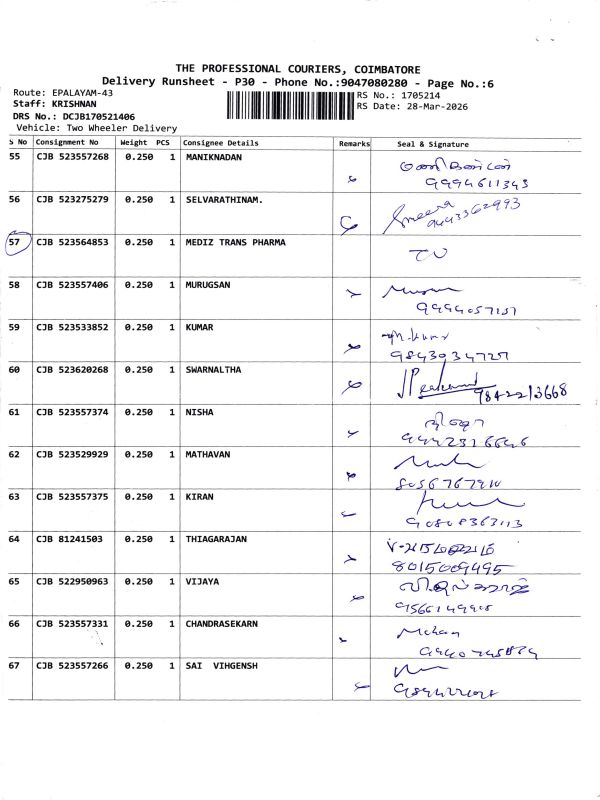 THE PROFESSIONAL COURIERS, COIMBATORE
Delivery Runsheet - P30 - Phone No.:9047080280 - Page No.:6
Route: EPALAYAM-43
RS No.: 1705214
Staff: KRISHNAN
RS Date: 28-Mar-2026
DRS No.: DCJB170521406
Vehicle: Two Wheeler Delivery
S No Consignment No Weight PCS Consignee Details Remarks Seal & Signature
55 CJB 523557268 0.250 1 MANIKNADAN மணிகண்டன்
9994611343
56 CJB 523275279 0.250 1 SELVARATHINAM.
9443362993
57 CJB 523564853 0.250 1 MEDIZ TRANS PHARMA
58 CJB 523557406 0.250 1 MURUGSAN
59 CJB 523533852 0.250 1 KUMAR
9843034727
60 CJB 523620268 0.250 1 SWARNALTHA
9842213668
61 CJB 523557374 0.250 1 NISHA
62 CJB 523529929 0.250 1 MATHAVAN
63 CJB 523557375 0.250 1 KIRAN
64 CJB 81241503 0.250 1 THIAGARAJAN
8015009495
65 CJB 522950963 0.250 1 VIJAYA
66 CJB 523557331 0.250 1 CHANDRASEKARN Mohan
67 CJB 523557266 0.250 1 SAI VIHGENSH